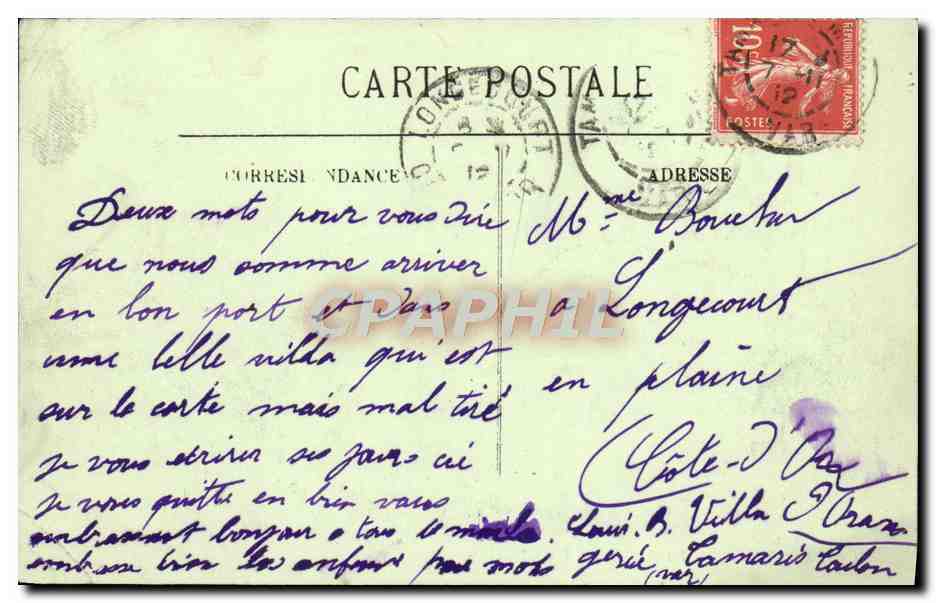 CARTE POSTALE
RÉPUBLIQUE FRANÇAISE
10c
POSTES
TAM
VAR
17
7 - 11
12
LONGECOURT
CORRESPONDANCE
ADRESSE
Deux mots pour vous dire
que nous somme arriver
en bon port et dans
une belle villa qui est
sur la carte mais mal tiré
je vous ecrirer ses jours ci
je vous quitte en bien vous
embrassant bonjour a tous le monde. Louis. B. Villa d'Oran
embrasse bien les enfant pour mois Tamaris Toulon
(var)
Mme
a Longecourt
en plaine
(Côte-d'Or
CPAPHIL